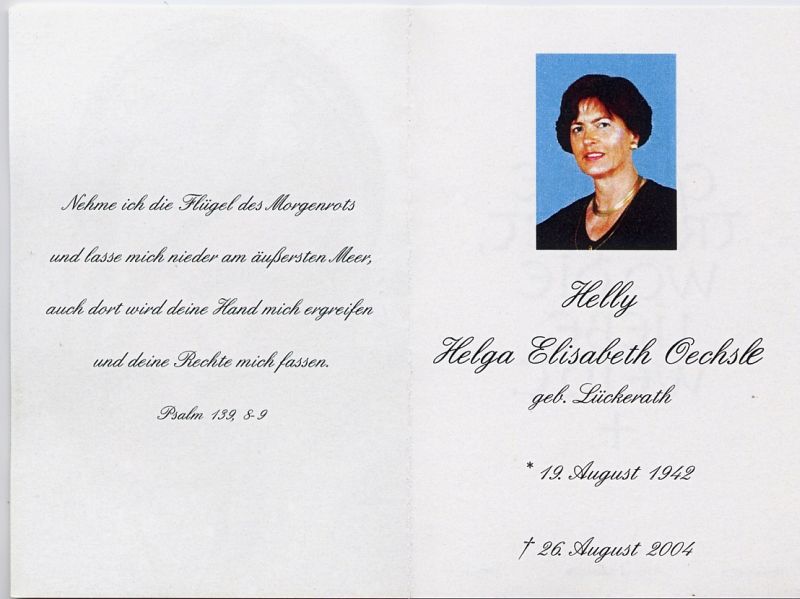 Nehme ich die Flügel des Morgenrots
und lasse mich nieder am äußersten Meer,
auch dort wird deine Hand mich ergreifen
und deine Rechte mich fassen.
Psalm 139, 8-9
Helly
Helga Elisabeth Oechsle
geb. Lückerath
* 19. August 1942
† 26. August 2004